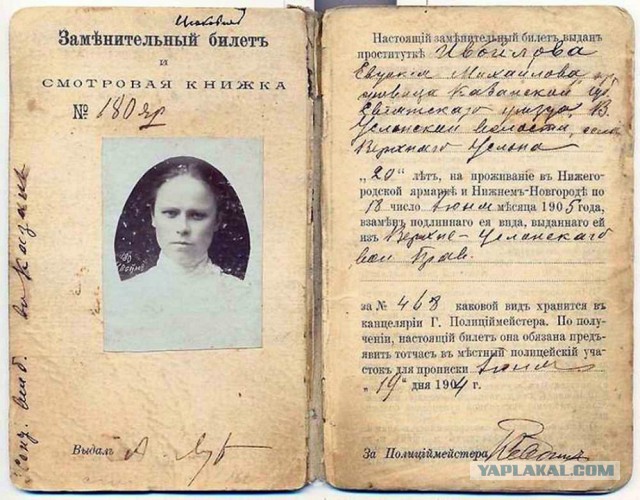 Замѣнительный билетъ
и
СМОТРОВАЯ КНИЖКА
№ 180 яр
Выдалъ
Настоящій замѣнительный билетъ выданъ
проституткѣ Ивойлова
Евдокія Михайлова
Казанской губ.
уѣзда, В.
Услонской волости, села
Верхняго Услона
„20" лѣтъ, на проживаніе въ Нижего-
родской армаркѣ и Нижнемъ-Новгородѣ по
18 число Іюня мѣсяца 1905 года,
взамѣнъ подлиннаго ея вида, выданнаго ей
изъ Верхне-Услонскаго
вол Прав.
за № 468 каковой видъ хранится въ
канцеляріи Г. Полиціймейстера. По полу-
ченіи, настоящій билетъ она обязана предъ-
явить тотчасъ въ мѣстный полицейскій уча-
стокъ для прописки Іюня
„19" дня 1904 г.
За Полиціймейстера
YAPLAKAL.COM